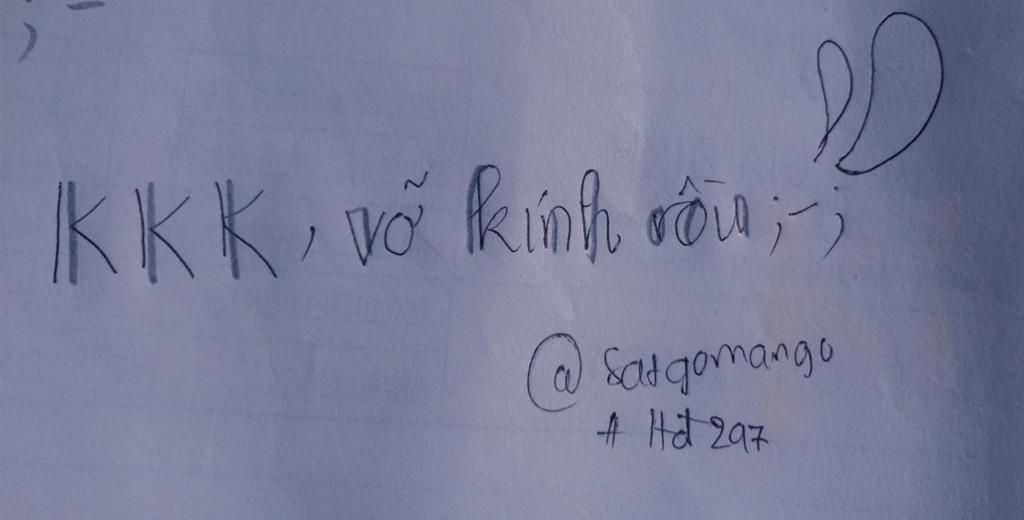 ; -
KKK, vỡ kính rồi ;-;
@saigomango
# Hđ 297